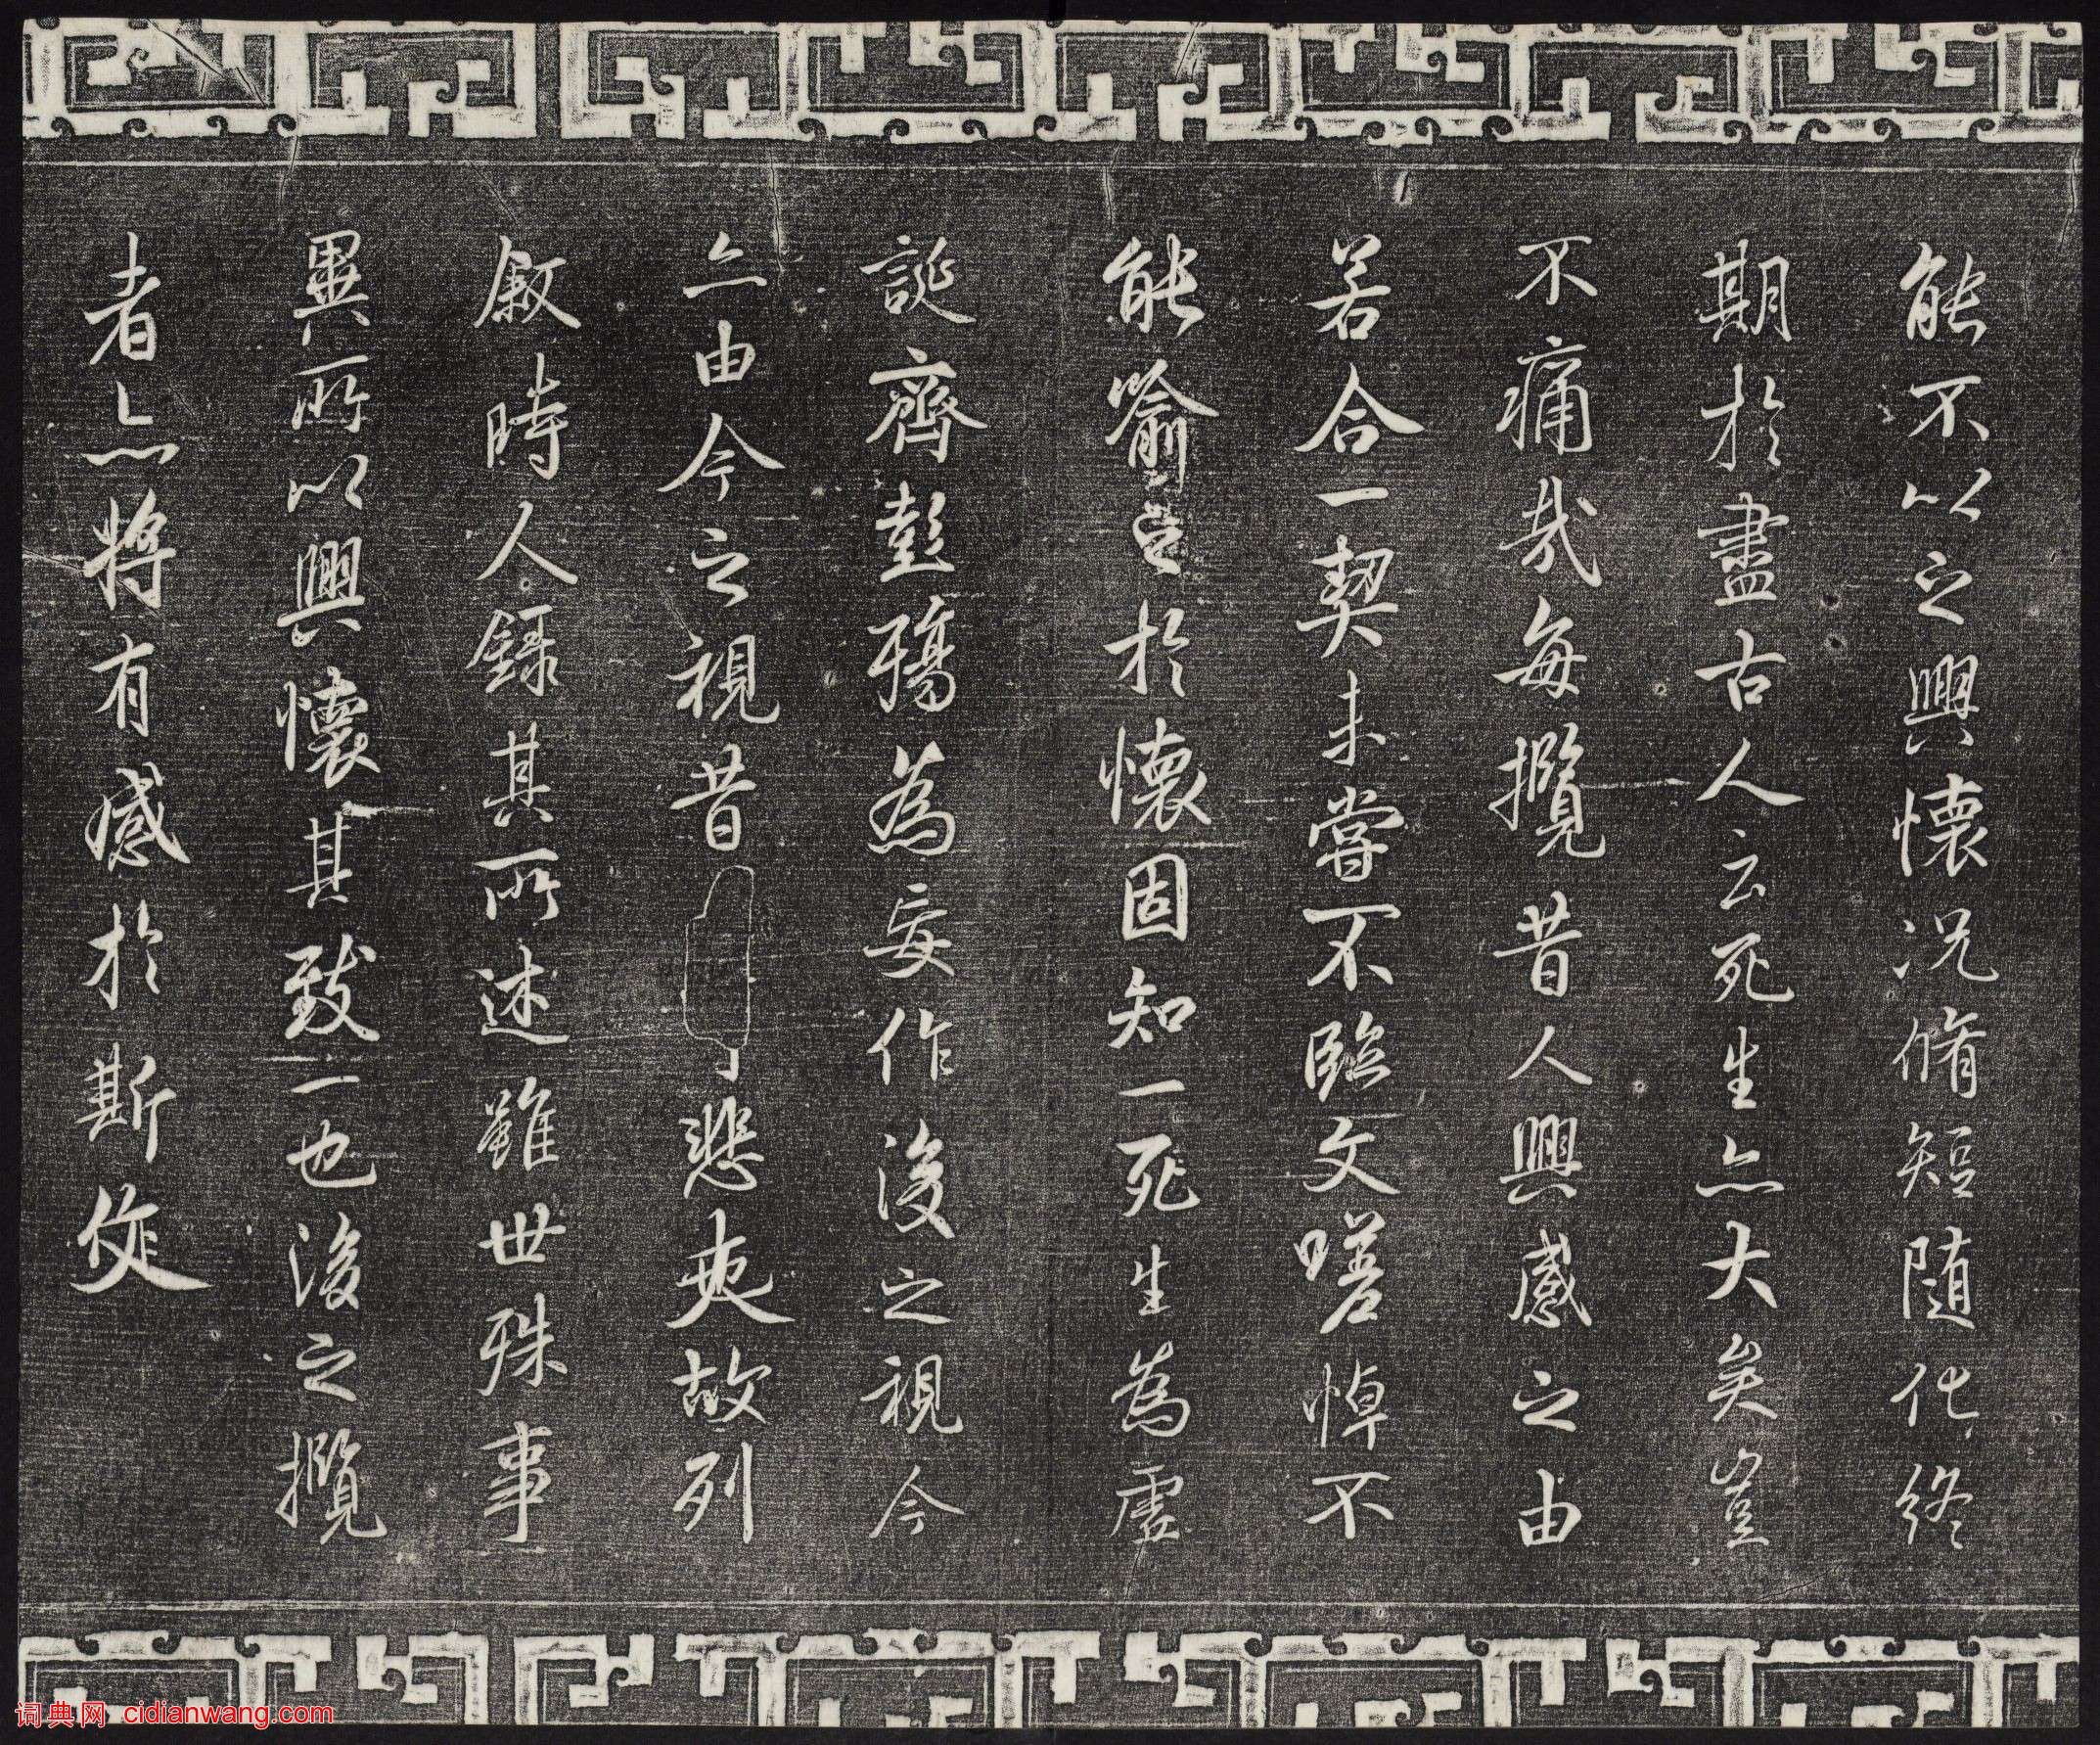 能不以之興懷况脩短隨化終
期於盡古人云死生亦大矣豈
不痛哉每攬昔人興感之由
若合一契未甞不臨文嗟悼不
能喻之於懷固知一死生為虛
誕齊彭殤為妄作後之視今
亦由今之視昔悲夫故列
叙時人録其所述雖世殊事
異所以興懷其致一也後之攬
者亦將有感於斯文
词典网 cidianwang.com